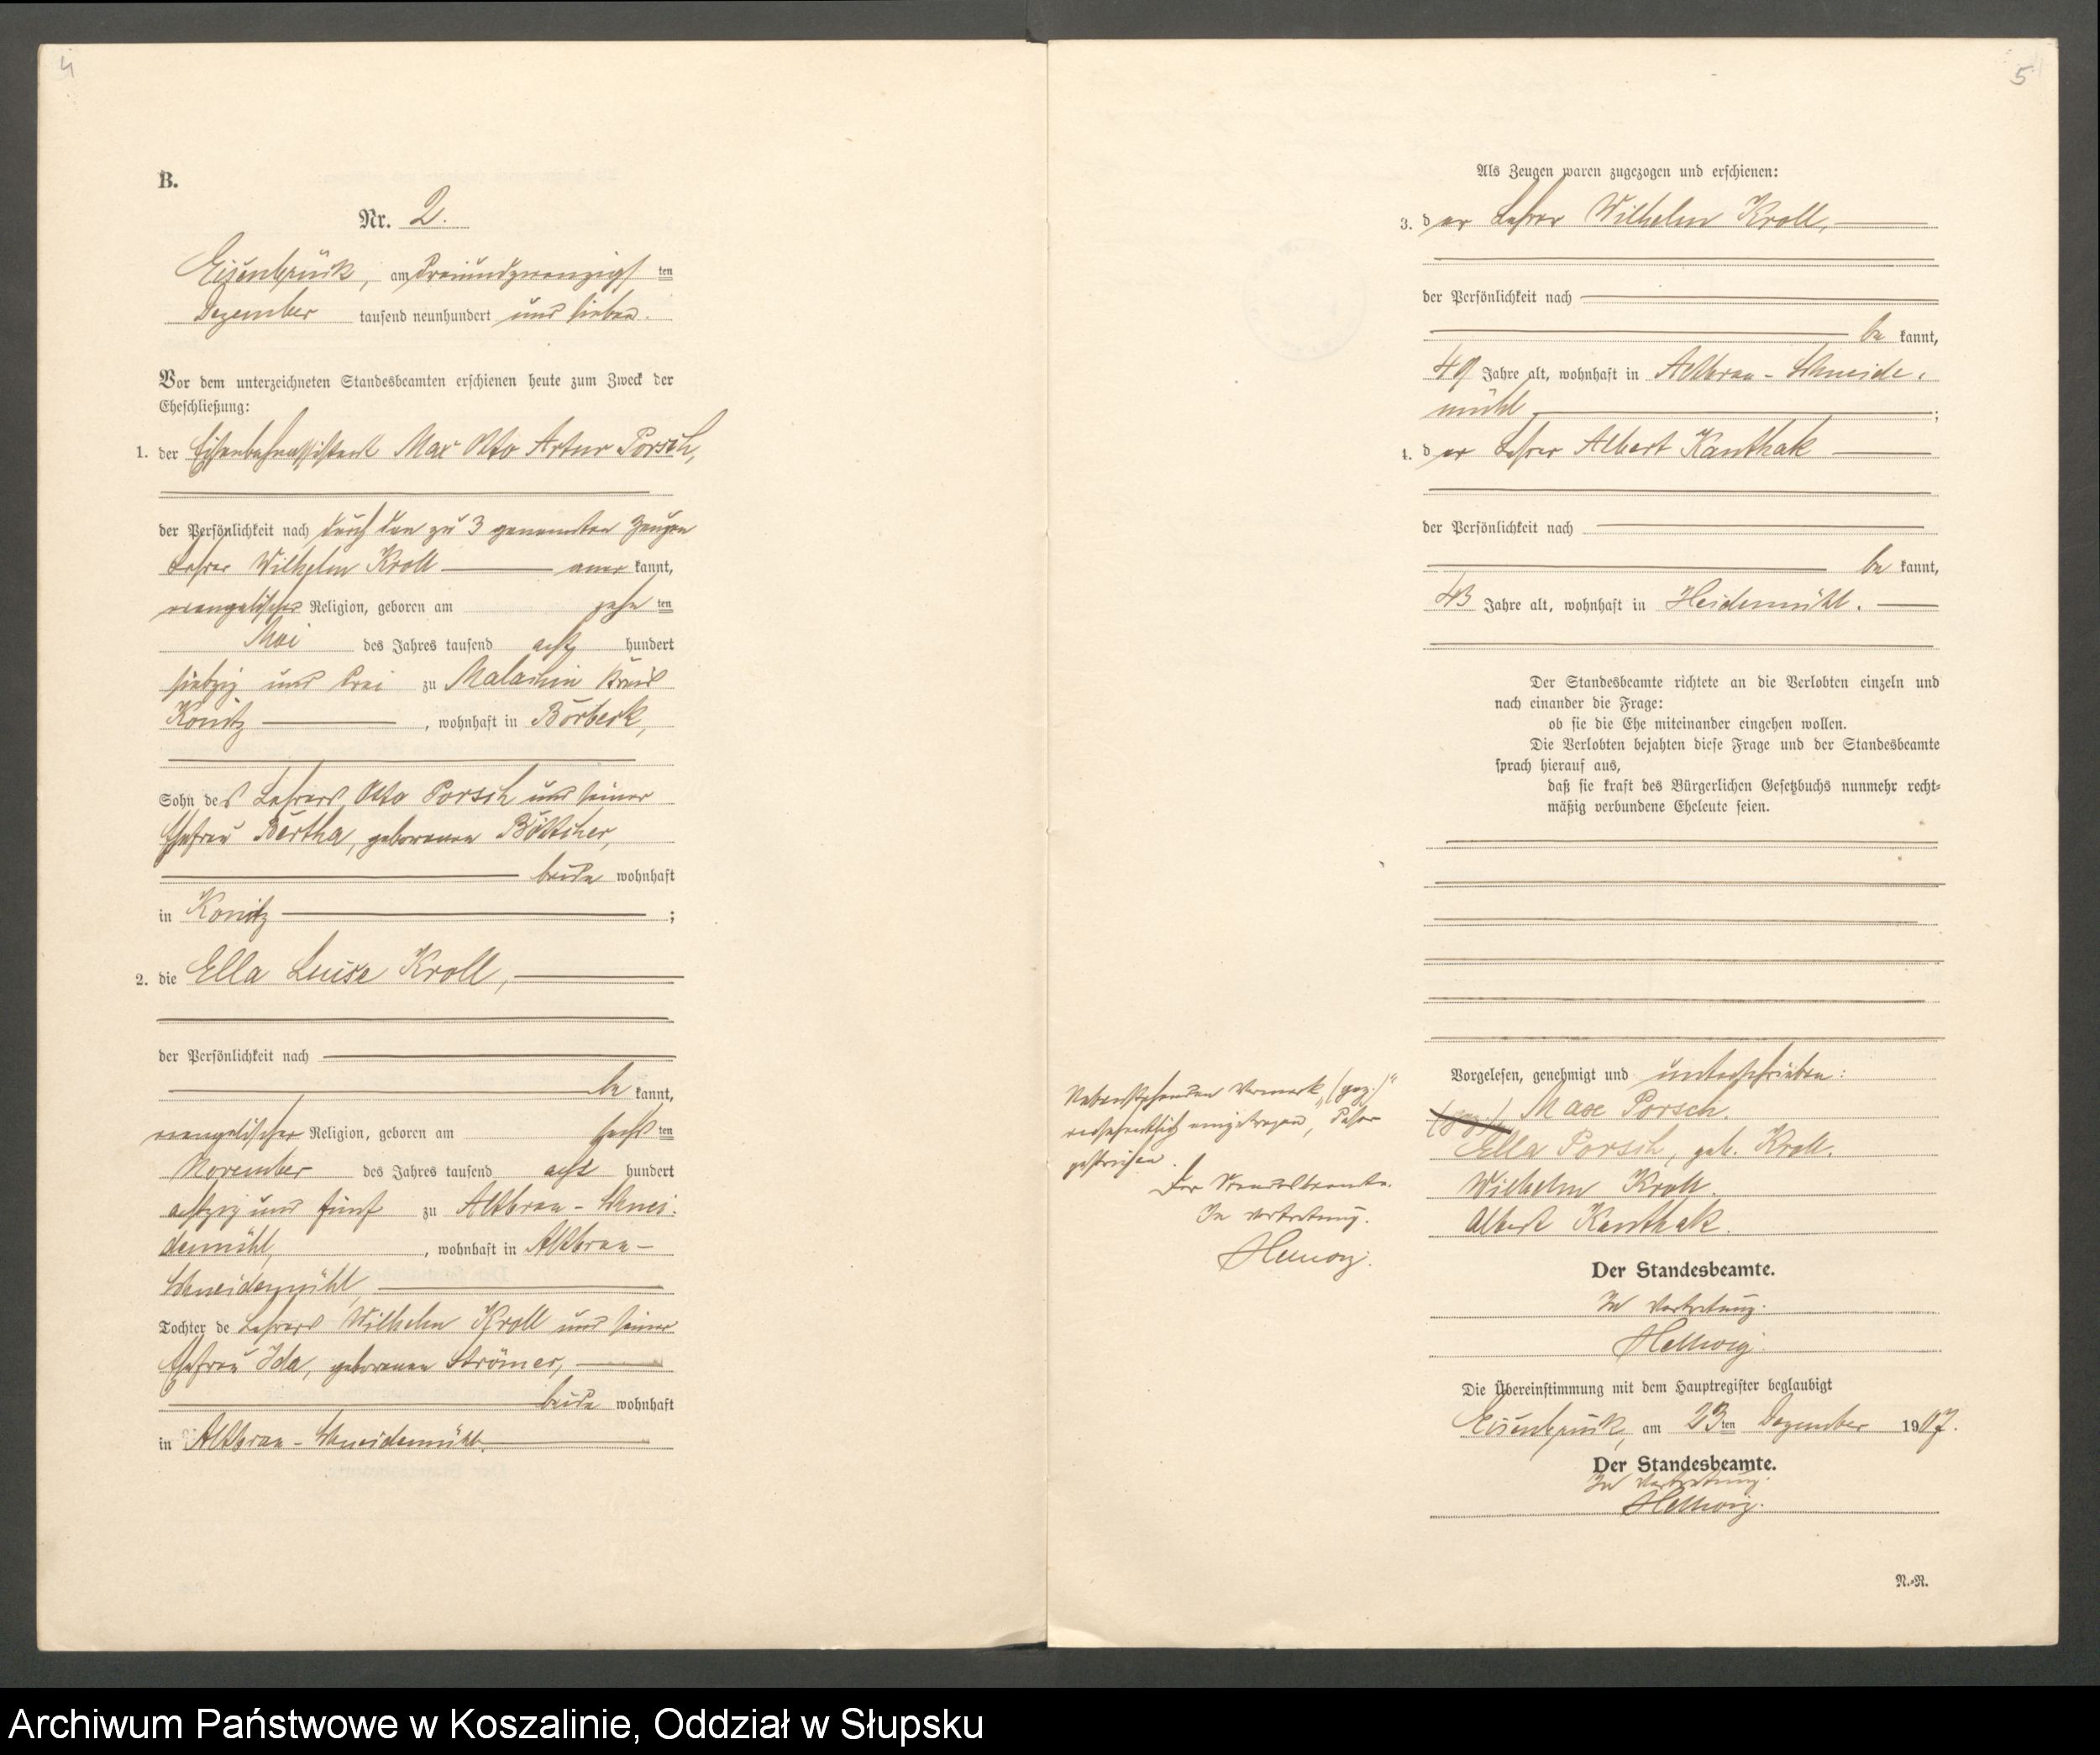 4
B.
Nr. 2.
Eisenbrück, am dreiundzwanzigsten
Dezember tausend neunhundert und sieben.
Vor dem unterzeichneten Standesbeamten erschienen heute zum Zweck der
Eheschließung:
1. der Eisenbahnassistent Max Otto Artur Porsch,
der Persönlichkeit nach durch den zu 3 genannten Zeugen
Lehrer Wilhelm Kroll anerkannt,
evangelischer Religion, geboren am zehnten
Mai des Jahres tausend acht hundert
siebzig und drei zu Malachin Kreis
Konitz, wohnhaft in Borbeck,
Sohn des Lehrers Otto Porsch und seiner
Ehefrau Bertha, geborenen Böttcher,
beide wohnhaft
in Konitz;
2. die Ella Luise Kroll,
der Persönlichkeit nach
bekannt,
evangelischer Religion, geboren am sechsten
November des Jahres tausend acht hundert
achtzig und fünf zu Altbrau-Schnei-
demühl, wohnhaft in Altbrau-
Schneidemühl,
Tochter de Lehrers Wilhelm Kroll und seiner
Ehefrau Ida, geborenen Strömer,
beide wohnhaft
in Altbrau-Schneidemühl.
5
Als Zeugen waren zugezogen und erschienen:
3. der Lehrer Wilhelm Kroll,
der Persönlichkeit nach
bekannt,
49 Jahre alt, wohnhaft in Altbrau-Schneide-
mühl;
4. der Lehrer Albert Kanthak
der Persönlichkeit nach
bekannt,
43 Jahre alt, wohnhaft in Heidemühl.
Der Standesbeamte richtete an die Verlobten einzeln und
nach einander die Frage:
ob sie die Ehe miteinander eingehen wollen.
Die Verlobten bejahten diese Frage und der Standesbeamte
sprach hierauf aus,
daß sie kraft des Bürgerlichen Gesetzbuchs nunmehr recht-
mäßig verbundene Eheleute seien.
Vorgelesen, genehmigt und unterschrieben:
(gez.) Max Porsch.
Ella Porsch, geb. Kroll.
Wilhelm Kroll.
Albert Kanthak.
Der Standesbeamte.
In Vertretung.
Hellwig.
Nebenstehenden Vermerk „(gez.)“
versehentlich eingetragen, daher
gestrichen.
Der Standesbeamte.
In Vertretung.
Hellwig.
Die Übereinstimmung mit dem Hauptregister beglaubigt
Eisenbrück, am 23ten Dezember 1907.
Der Standesbeamte.
In Vertretung.
Hellwig.
N.-R.
Archiwum Państwowe w Koszalinie, Oddział w Słupsku